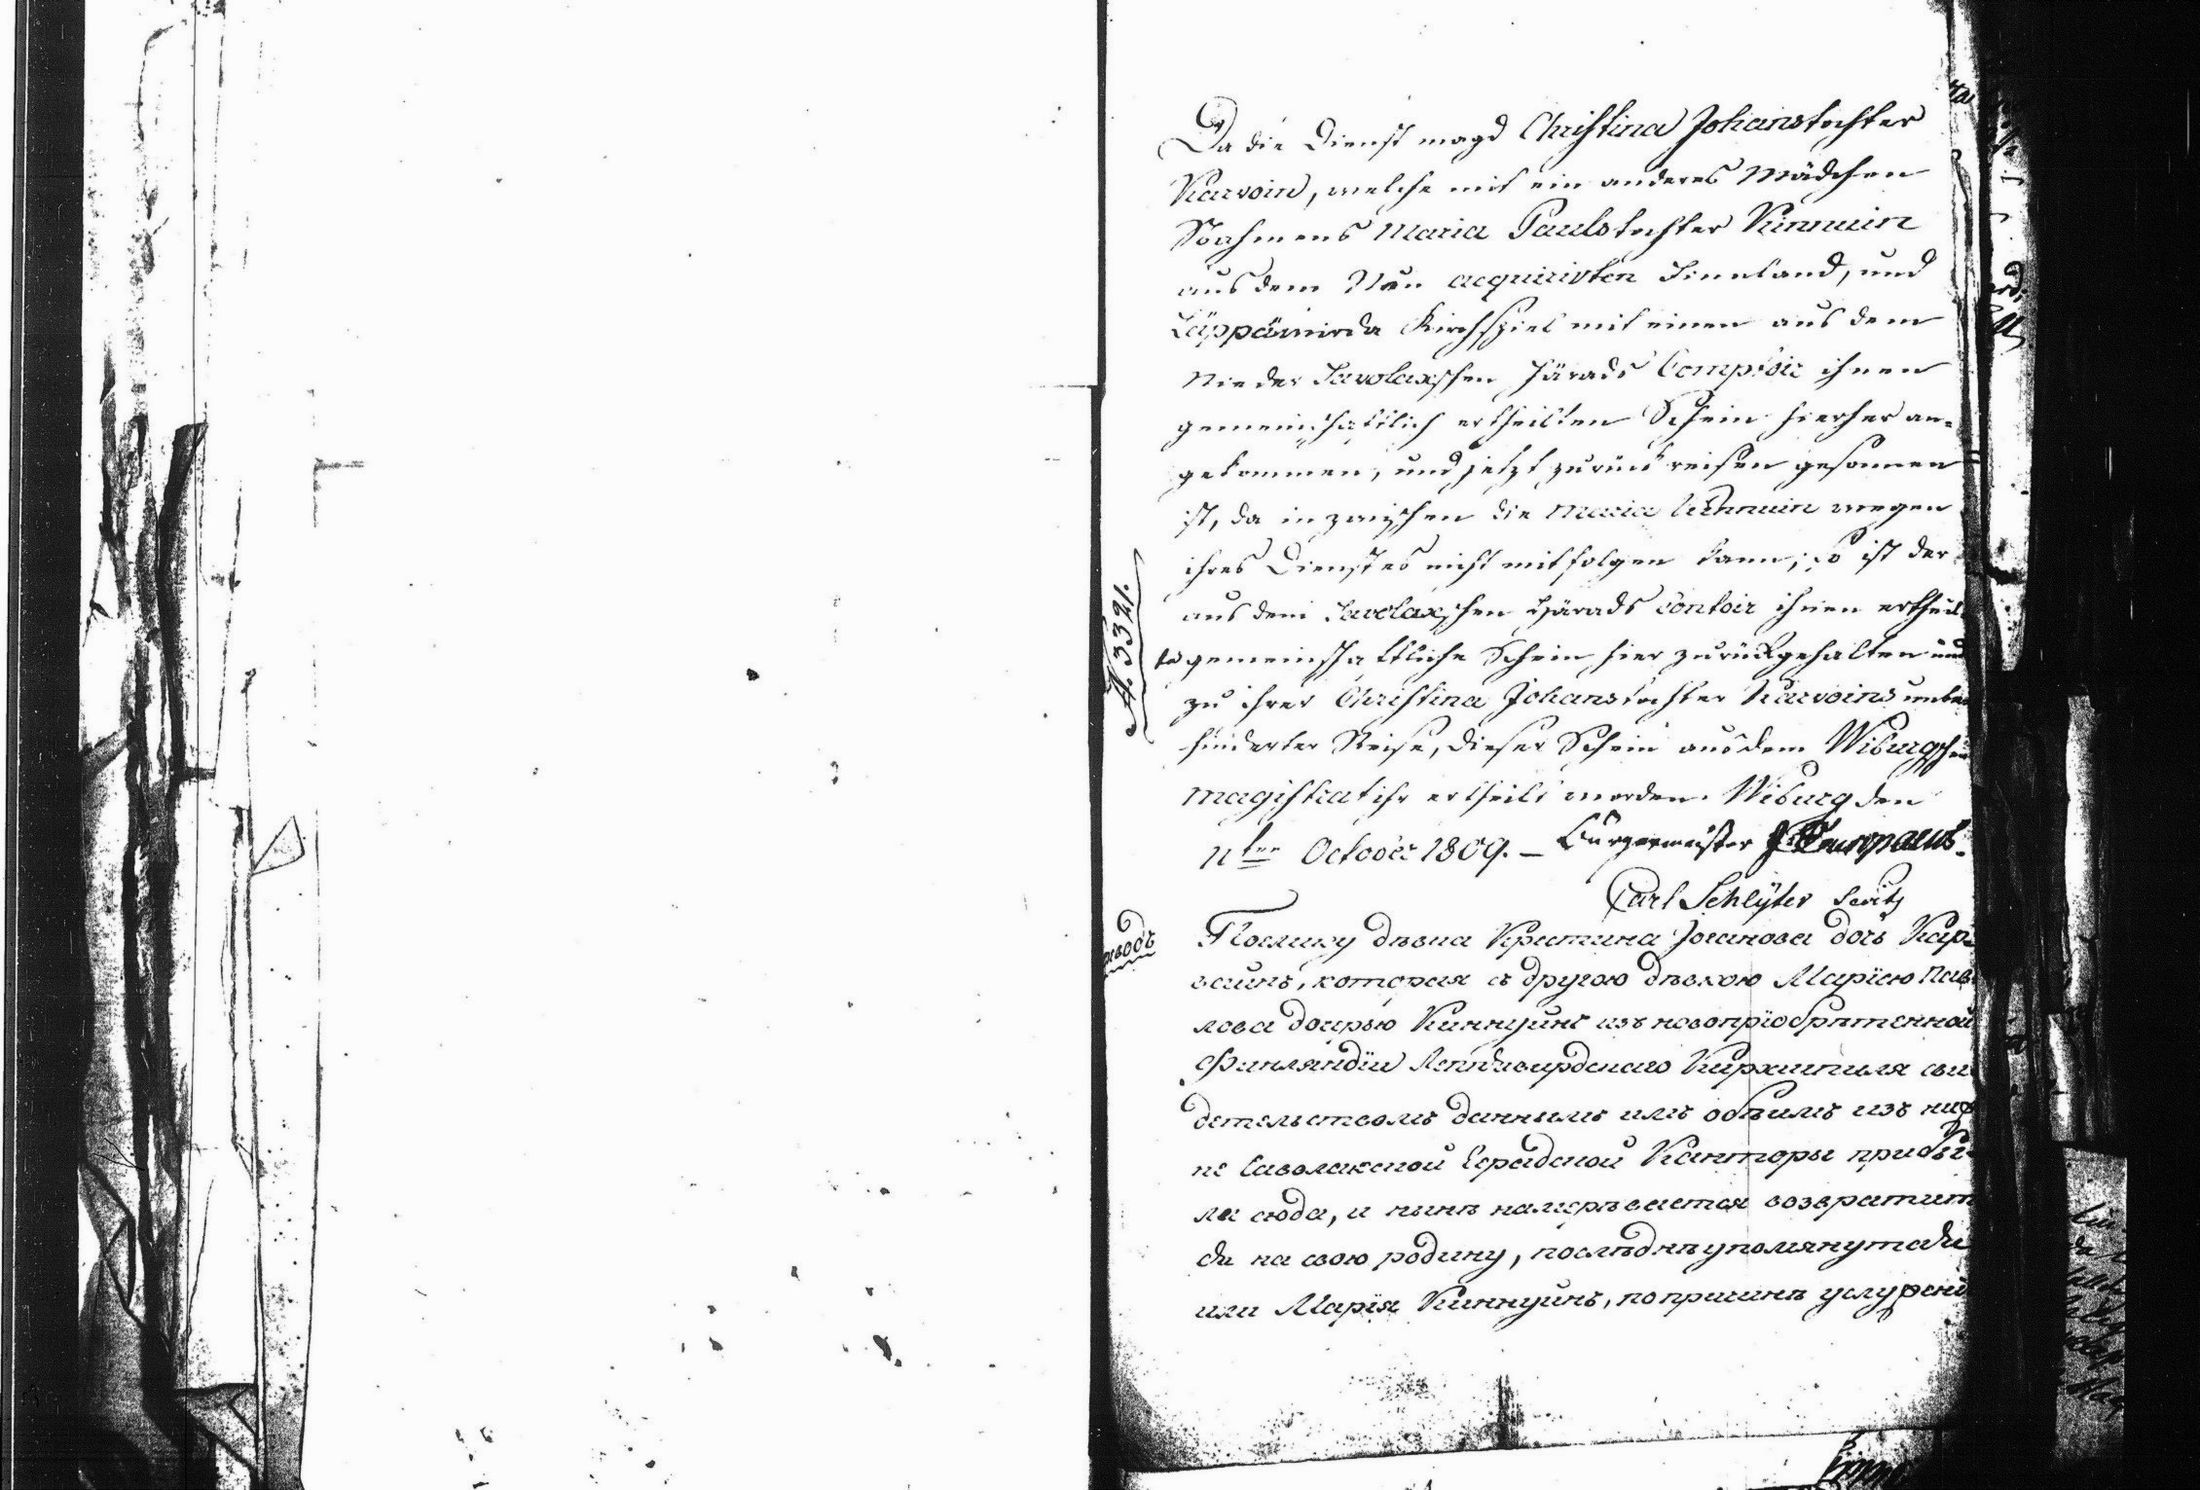 Da die Dienst magd Christina Johanstochter
Karvoin, welche mit ein anderes Mädchen
Nahmens Maria Paulstochter Kinnuin
aus dem Neu acquirirten Finnland, und
Läppäwirda Kirchspiel mit einen aus dem
Nieder Savolaxschen Härads Comptoir ihnen
gemeinschaftlich ertheilten Schein hierher an-
gekommen, und jetzt zurück reisen gesonnen
ist, da inzwischen die Maria Kinnuin wegen
ihres Dienstes nicht mitfolgen kann, so ist der
aus dem Savolaxschen Härads Contoir ihnen ertheil-
te gemeinschaftliche Schein hier zurückgehalten und
zu ihrer Christina Johanstochter Karvoins unbe-
hinderter Reise, dieser Schein aus dem Wiburgschen
Magistrat ihr ertheilt worden. Wiburg den
11ten October 1809. — Bürgermeister
Carl Schlyter Secrtz
A. 3321.
Поелику девка Кристина Јоганова дочь Кар-
воинъ, которая съ другою девкою Марїею Пав-
лова дочерью Киннуинъ изъ новопрїобретенной
Финляндїи Леппевирдскаго Кирхшпиля сви
детельствомъ даннымъ имъ обѣимъ изъ ниж
не Саволакской Герадской Канторы прибы-
ли сюда, и нынѣ намѣревается возвратит
ся на свою родину, последнѣупомянутая
или Марїя Киннуинъ, по причинѣ услуженї